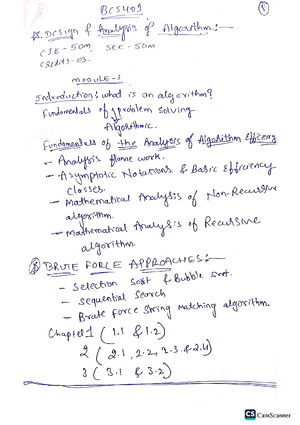 BCS401
Design & Analysis of Algorithm:-
CIE - 50M, SEE - 50M
Credits - 03.
MODULE - 1
Introduction: what is an algorithm?
Fundamentals of problem solving
Algorithmic.
Fundamentals of the Analysis of Algorithm Efficiency
- Analysis frame work.
- Asymptotic Notations & Basic Efficiency
classes.
- Mathematical Analysis of Non-Recursive
algorithm.
- Mathematical Analysis of Recursive
algorithm.
BRUTE FORCE APPROACHES:-
- Selection Sort & Bubble Sort.
- Sequential Search
- Brute Force String Matching algorithm.
Chapter 1 (1.1 & 1.2)
2 (2.1, 2.2, 2.3 & 2.4)
3 (3.1 & 3.2)
CS CamScanner